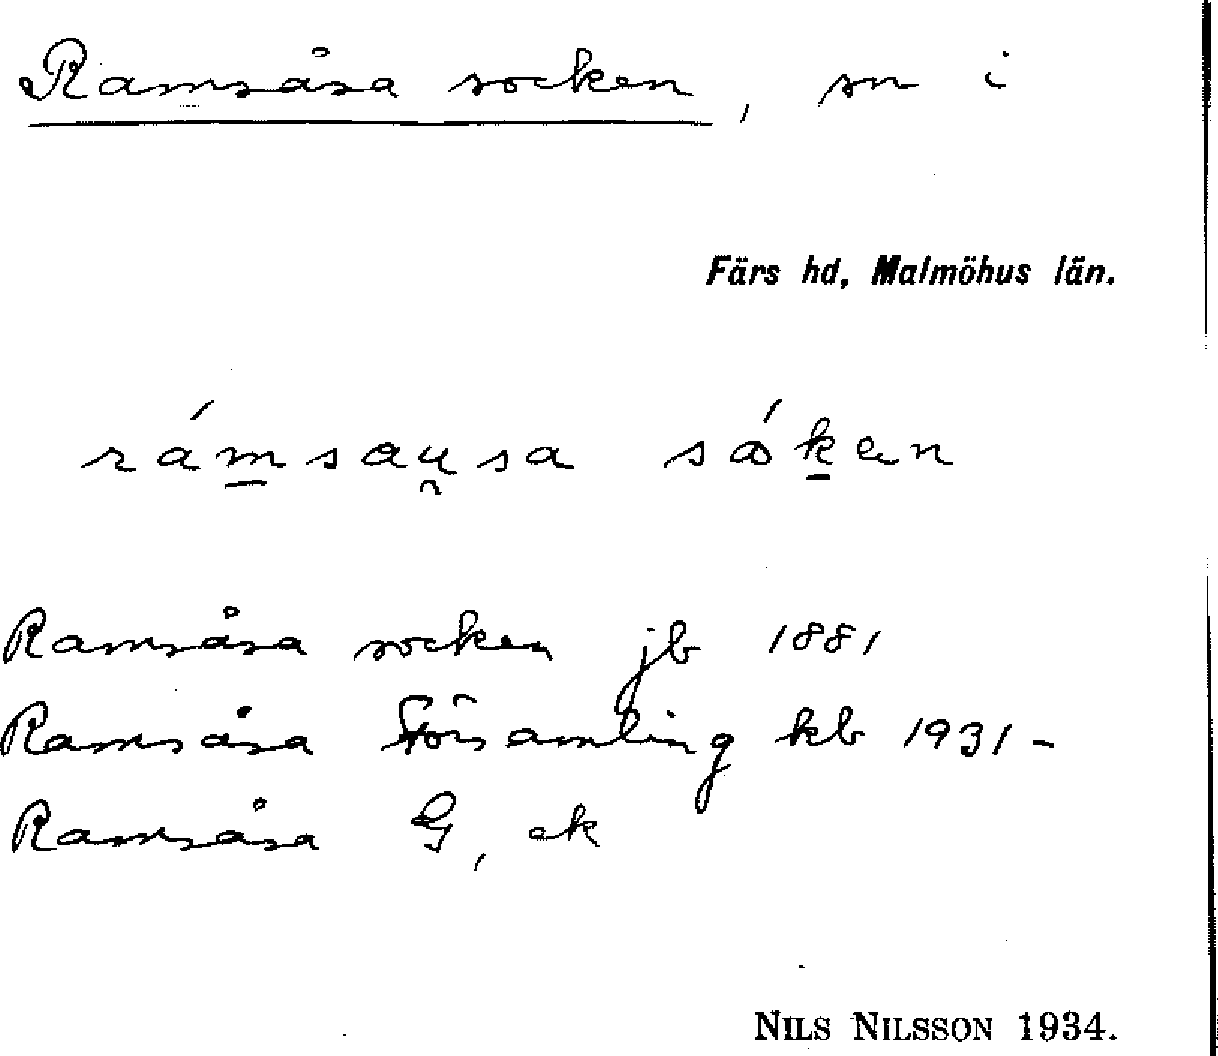 Ramsåsa socken, sn i
Färs hd, Malmöhus län.
rámsau̯sa sóken
Ramsåsa socken jb 1881
Ramsåsa Församling kb 1931-
Ramsåsa G, ek
NILS NILSSON 1934.